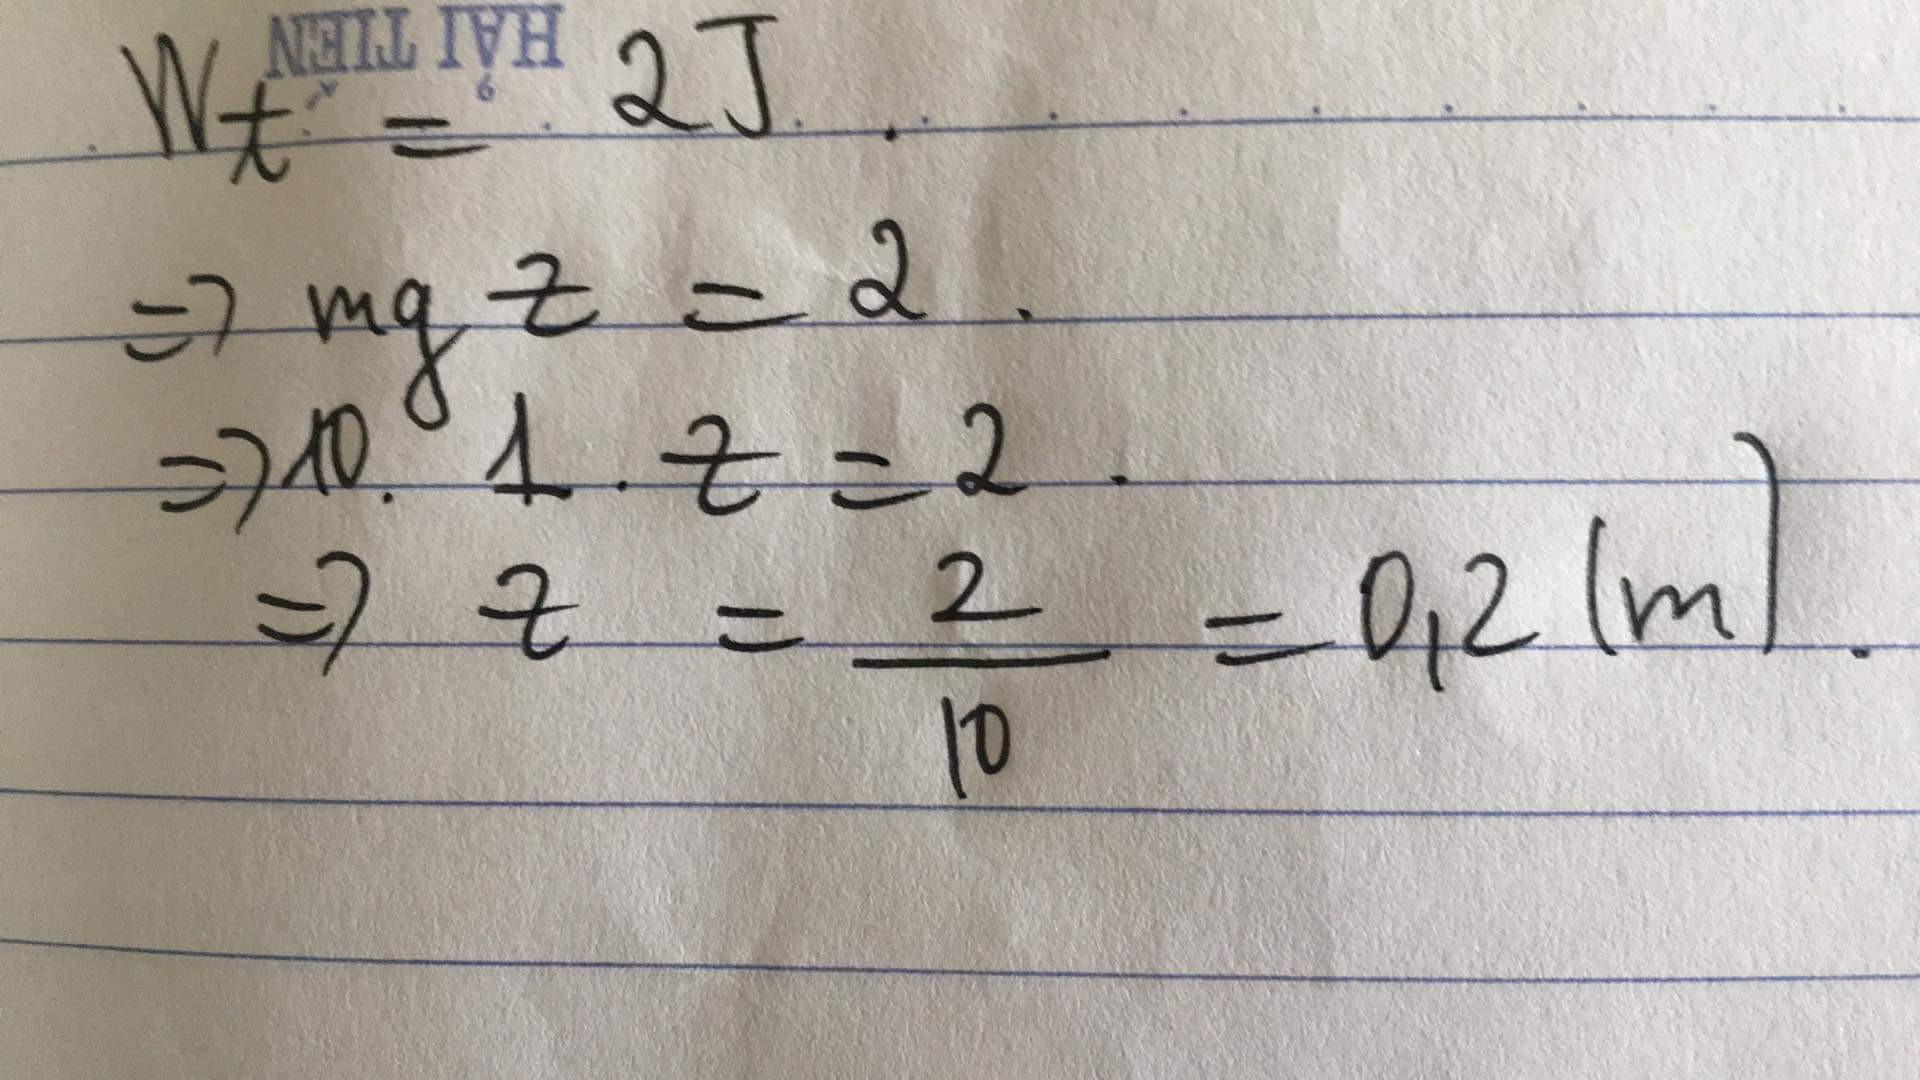 HẢI TIẾN
Wt = 2J.
=> mgz = 2.
=> 10. 1. z = 2.
=> z = 2/10 = 0,2 (m).